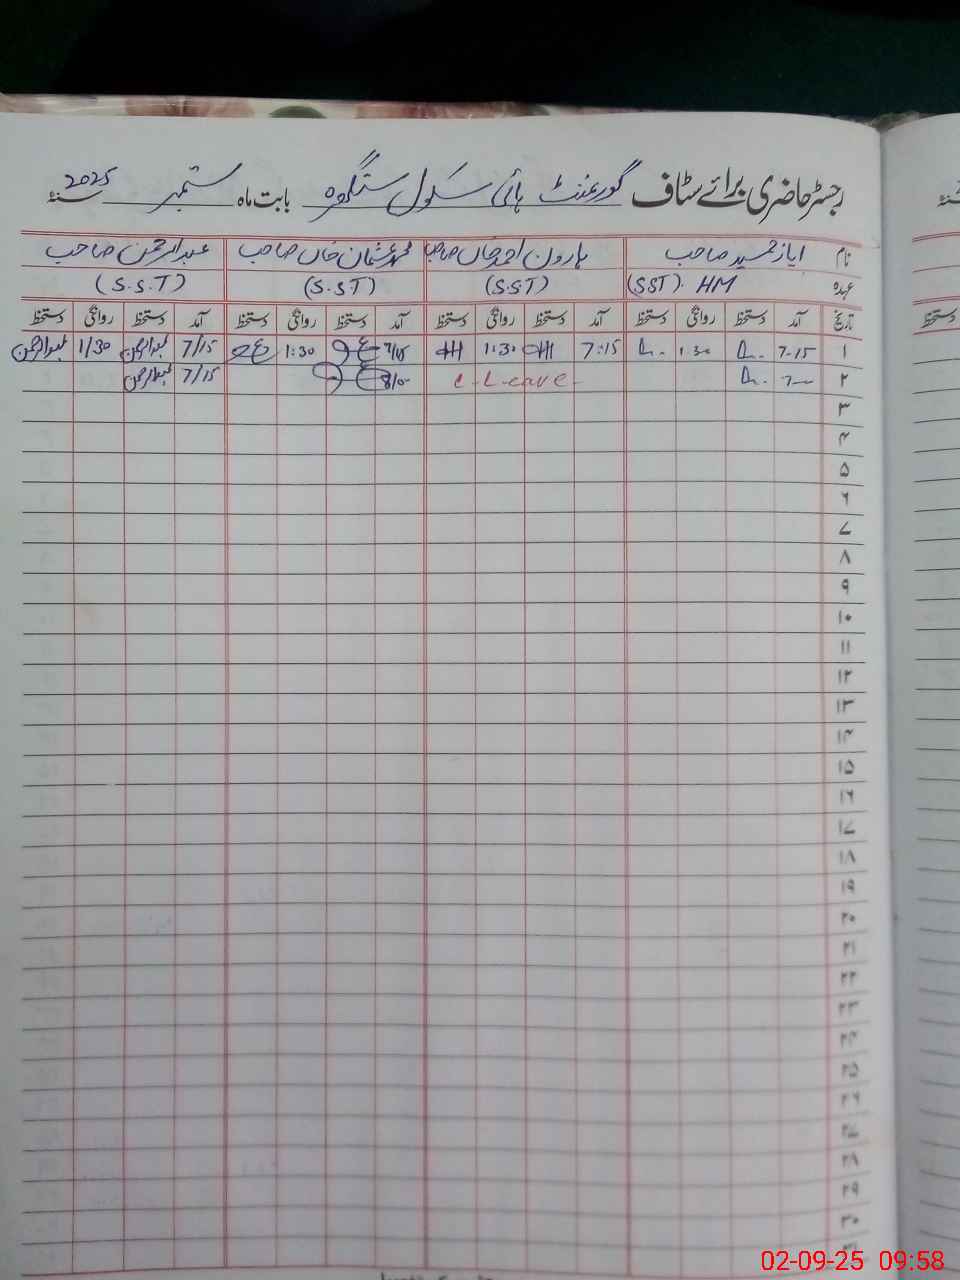 رجسٹر حاضری برائے سٹاف گورنمنٹ ہائی سکول بابت ماہ ستمبر سنہ 2025
نام ایاز حمید صاحب ہارون احمد خان صاحب محمد عثمان خان صاحب عبدالرحمن صاحب
عہدہ (SST). HM (S.ST) (S.ST) (S.S.T)
تاریخ آمد دستخط روانگی دستخط آمد دستخط روانگی دستخط آمد دستخط روانگی دستخط آمد دستخط روانگی دستخط
۱ 7-15 1 30 7:15 1:30 7/15 1:30 7/15 عبدالرحمن 1/30 عبدالرحمن
۲ C-Leave- 7/15 عبدالرحمن
۳
۴
۵
۶
۷
۸
۹
۱۰
۱۱
۱۲
۱۳
۱۴
۱۵
۱۶
۱۷
۱۸
۱۹
۲۰
۲۱
۲۲
۲۳
۲۴
۲۵
۲۶
۲۷
۲۸
۲۹
۳۰
۳۱
02-09-25 09:58